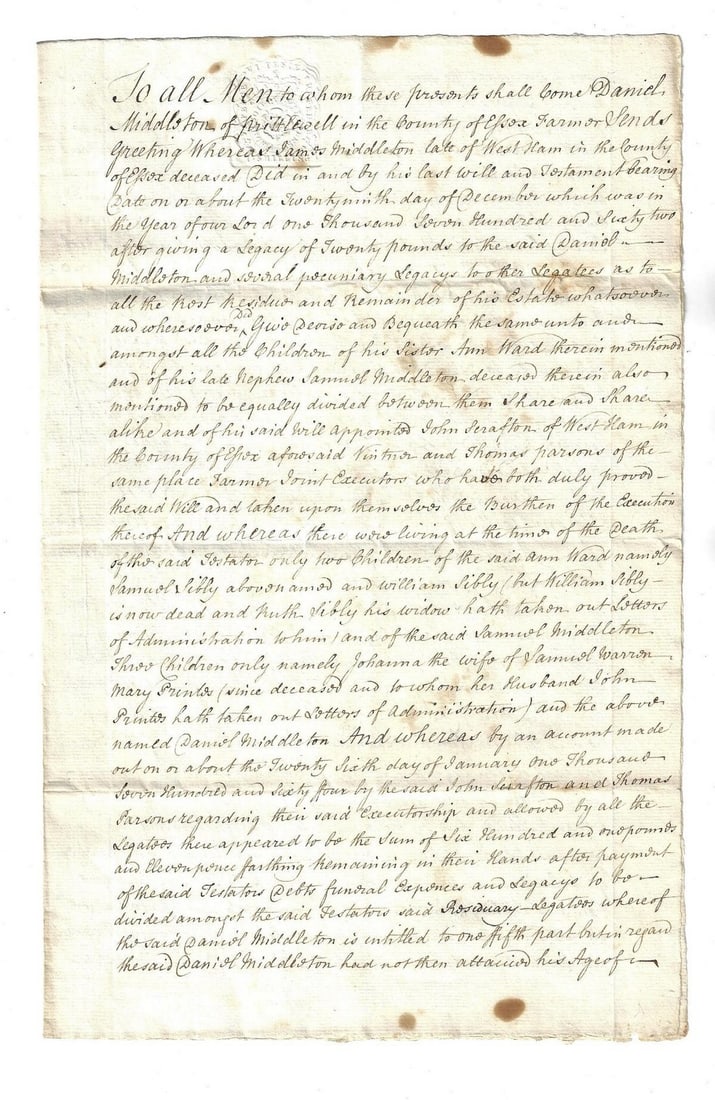 To all Men to whom these presents shall Come Daniel
Middleton of prittlewell in the County of Essex Farmer Sends
Greeting Whereas James Middleton late of West Ham in the County
of Essex deceased Did in and by his last will and Testament bearing
Date on or about the Twenty ninth day of December which was in
the Year of our Lord one Thousand Seven Hundred and Sixty two
after giving a Legacy of Twenty pounds to the said Daniel
Middleton and several pecuniary Legacys to other Legatees as to
all the Rest Residue and Remainder of his Estate whatsoever
and wheresoever Did Give Devise and Bequeath the same unto and
amongst all the Children of his Sister Ann Ward therein mentioned
and of his late Nephew Samuel Middleton deceased therein also
mentioned to be equally divided between them Share and Share
alike and of his said Will appointed John Scrafton of West Ham in
the County of Essex aforesaid Vintner and Thomas parsons of the
same place Farmer Joint Executors who have both duly proved
the said Will and taken upon themselves the Burthen of the Execution
thereof And whereas there were living at the time of the Death
of the said Testator only two Children of the said Ann Ward namely
Samuel Sibly above named and william Sibly (but William Sibly
is now dead and Ruth Sibly his widow hath taken out Letters
of Administration to him) and of the said Samuel Middleton
Three Children only namely Johanna the wife of Samuel Warren
Mary Printes (since deceased and to whom her Husband John
Printes hath taken out Letters of Administration) and the above
named Daniel Middleton And whereas by an account made
out on or about the Twenty Sixth day of January one Thousand
Seven Hundred and Sixty ffour by the said John Scrafton and Thomas
Parsons regarding their said Executorship and allowed by all the
Legatees there appeared to be the Sum of Six Hundred and one pounds
and Eleven pence farthing Remaining in their Hands after payment
of the said Testators Debts funeral Expences and Legacys to be
divided amongst the said Testators said Residuary Legatees whereof
the said Daniel Middleton is intitled to one fifth part but in regard
the said Daniel Middleton had not then attained his Age of